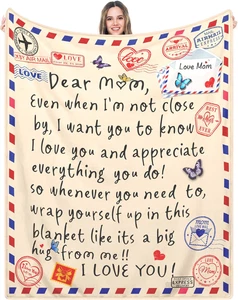 ARRIVAL
BY AIR MAIL
LOVE
Love Mom
Dear Mom,
Even when I'm not close
by, I want you to know
I love you and appreciate
everything you do!
so whenever you need to,
wrap yourself up in this
blanket like its a big
hug from me!!
I LOVE YOU!
EXPRESS